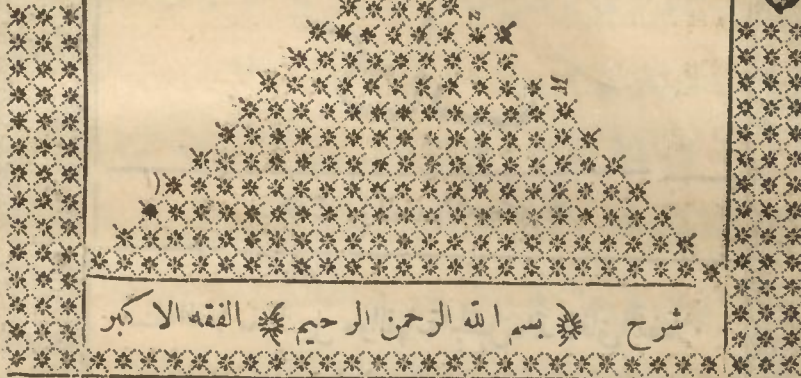 شرح ﴿ بسم الله الرحمن الرحيم ﴾ الفقه الاكبر